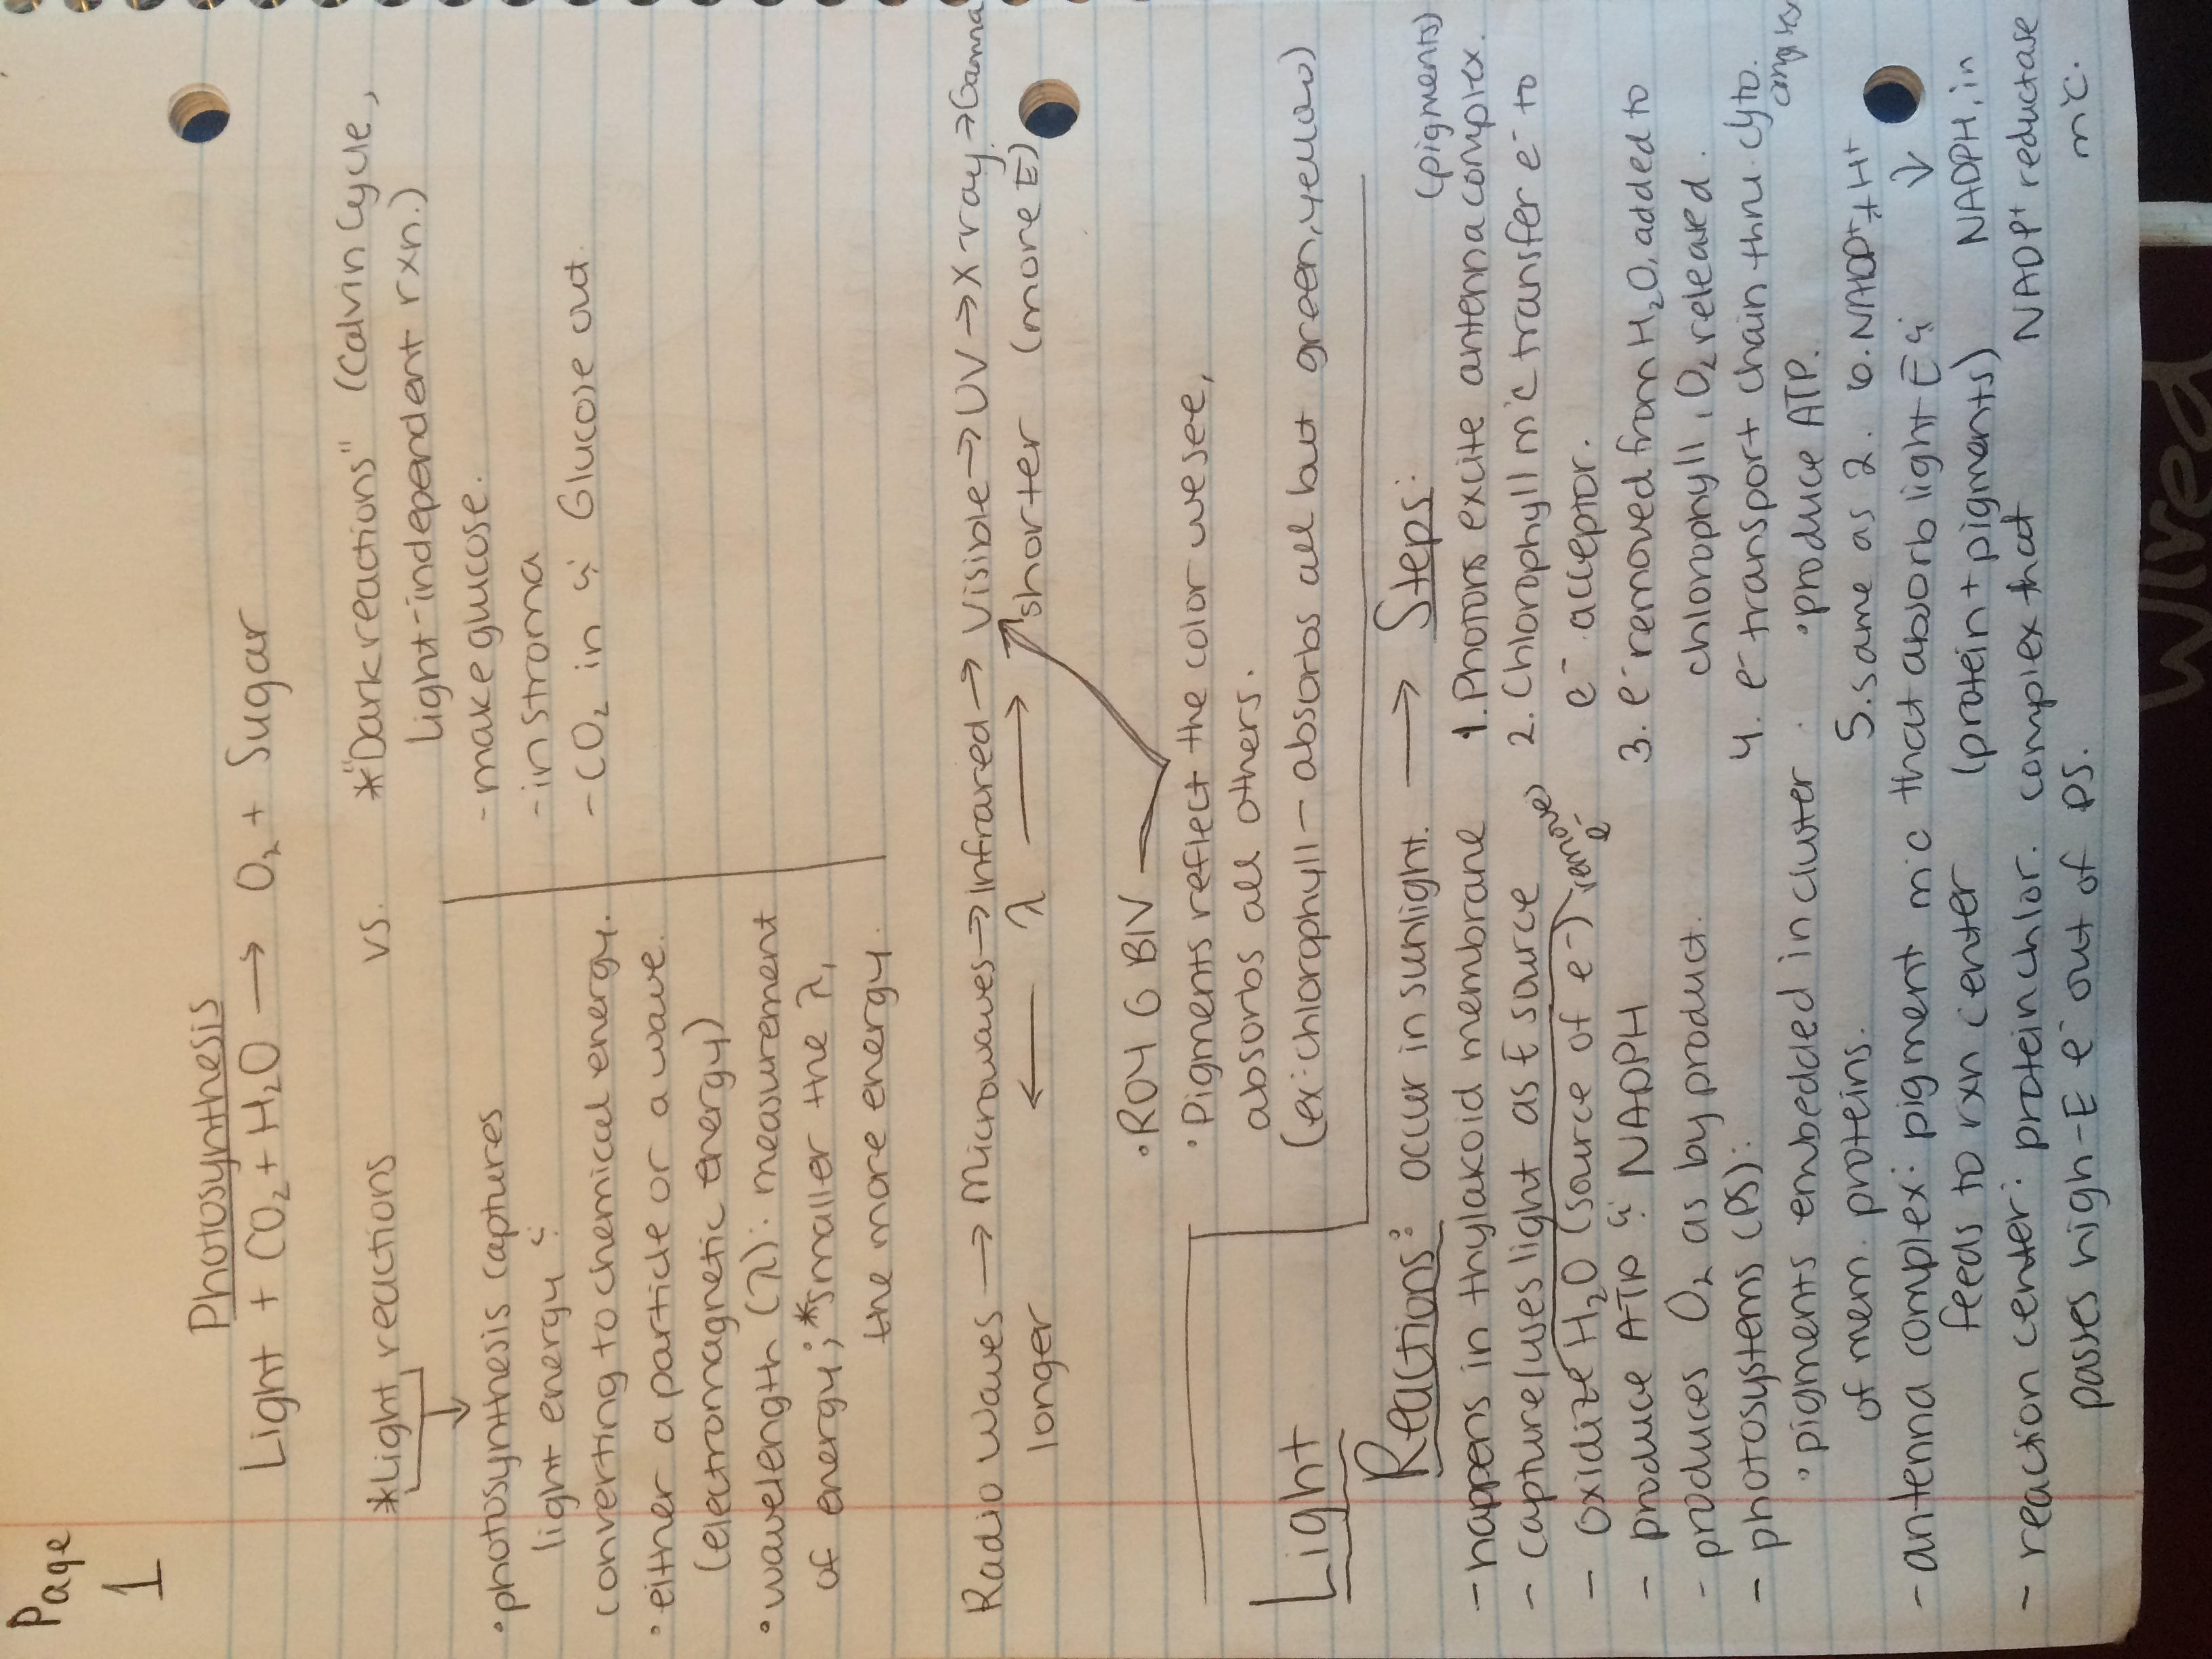 Page
1
Photosynthesis
Light + CO₂ + H₂O → O₂ + Sugar
*Light reactions vs. *"Dark reactions" (Calvin Cycle,
Light-independent rxn.)
• photosynthesis captures
light energy &
converting to chemical energy.
• either a particle or a wave.
(electromagnetic energy)
• wavelength (λ): measurement
of energy; *smaller the λ,
the more energy.
- make glucose.
- in stroma
- CO₂ in & Glucose out.
Radio waves → Microwaves → Infrared → Visible → UV → X-ray → Gamma
longer ← λ → shorter (more E)
• ROY G BIV
• Pigments reflect the color we see,
absorbs all others.
(ex: chlorophyll - absorbs all but green, yellow)
Light
Reactions: occur in sunlight. → Steps:
- happens in thylakoid membrane
- capture/uses light as E source
- oxidize H₂O (source of e-) remove e-
- produce ATP & NADPH
- produces O₂ as by product.
- photosystems (PS):
• pigments embedded in cluster
of mem. proteins.
- antenna complex: pigment mlc that absorb light E &
feeds to rxn center (protein + pigments)
- reaction center: protein chlor. complex that
passes high-E e- out of PS.
(pigments)
1. Photons excite antenna complex.
2. Chlorophyll mlc transfer e- to
e- acceptor.
3. e- removed from H₂O, added to
chlorophyll, O₂ released.
4. e- transport chain thru cyto.
complex
• produce ATP.
5. same as 2. 6. NADP+ + H+
↓
NADPH, in
NADP+ reductase
mlc.
Wired